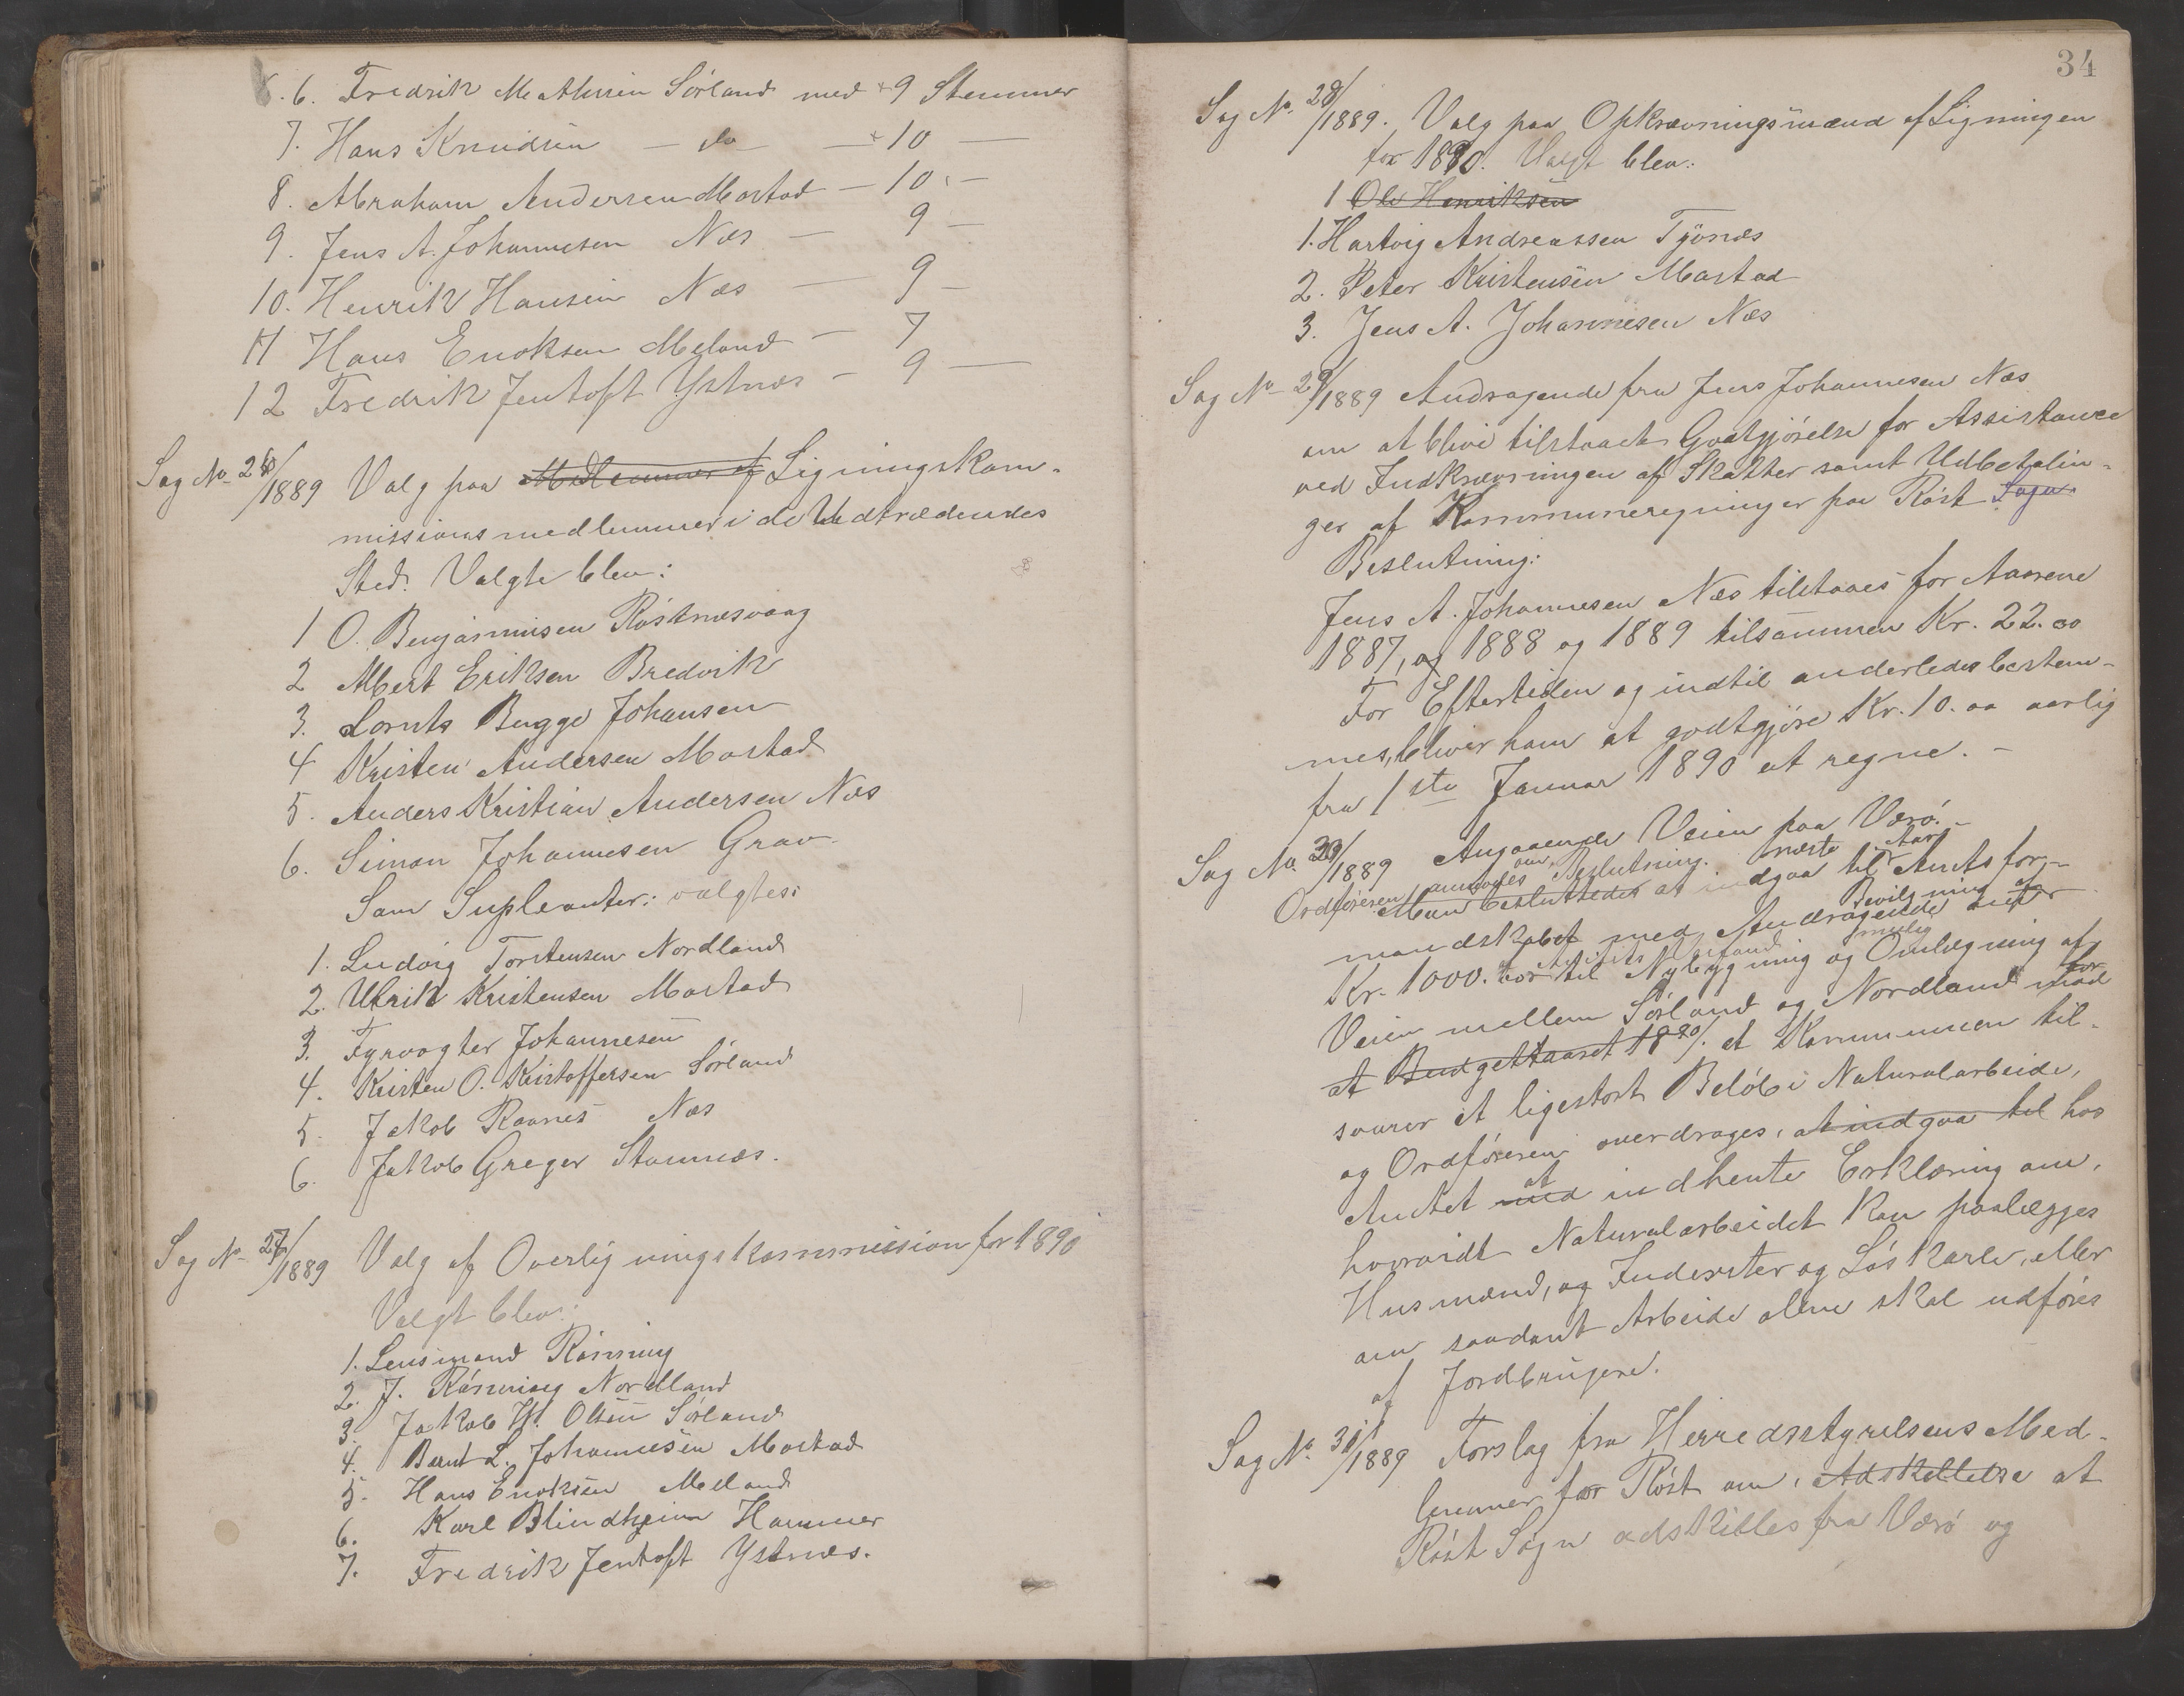 6. Fredrik Mathisen Sörland med 9 Stemmer
7. Hans Knudsen — do — — 10 —
8. Abraham Andersen Mostad — 10 —
9. Jens A. Johannesen Næs — 9 —
10. Henrik Hansen Næs — 9 —
11 Hans Enoksen Meland — 7
12 Fredrik Jentoft Ystnæs — 9 —
Sag No 26/1889 Valg paa Medlemmer af Ligningskom-
missionsmedlemmer i de Udtrædendes
Sted. Valgte blev:
1 O. Benjaminsen Röstnesvaag
2 Albert Eriksen Bredvik
3. Lornts Bugge Johansen
4 Kristen Andersen Mostad
5. Anders Kristian Andersen Næs
6. Simon Johannesen Grav
Som Supleanter: valgtes:
1. Ludvig Torstensen Nordland
2. Ulrik Kristensen Mostad
3. Fyrvogter Johannesen
4. Kristen O. Kristoffersen Sörland
5. Jakob Næs
6. Jakob Greger Stavnæs.
Sag No 27/1889 Valg af Overligningskommission for 1890
Valgt blev:
1. Lensmand Rönning
2. J. Rönning Nordland
3. Jakob W. Olsen Sörland
4. Bernt L. Johannesen Mostad
5. Hans Enoksen Meland
6. Karl Blindheim Hammer
7. Fredrik Jentoft Ystnæs.
34
Sag No. 28/1889. Valg paa Opkrævningsmænd af Ligningen
for 1890. Valgt blev:
1 Ole Henriksen
1. Hartvig Andreassen Tyvnæs
2. Peter Kristensen Mostad
3. Jens A. Johannesen Næs
Sag No 29/1889 Andragende fra Jens Johannesen Næs
om at blive tilstaaet Godtgjörelse for Assistance
ved Indkrævningen af Skatter samt Udbetalin-
ger af Kommuneregninger paa Röst Sogn
Beslutning:
Jens A. Johannesen Næs tilstaaes for Aarene
1887, og 1888 og 1889 tilsammen Kr. 22.00
For Eftertiden og indtil anderledes bestem-
mes, bliver ham at godtgjöre Kr. 10.00 aarlig
fra 1ste Januar 1890 at regne. —
Sag No. 30/1889 Angaaende Veien paa Værö. —
Beslutning. næste Aars
Ordföreren anmodes om Man besluttedes at indgaa til Amtsfor-
mandskabet med Andragende om Bevilgning af
Kr. 1000. til Nybygning og mulig Omlægning af
Veien mellem Sörland og Nordland mod for
at Budgetaaret 1890/. at Kommunen til-
svarer et ligestort Belöb i Naturalarbeide,
og Ordföreren overdrages, at indgaa til hos
Amtet med at indhente Erklæring om,
hvorvidt Naturalarbeidet kan paalægges
Husmænd, og Inderster og Löskarle, eller
om saadant Arbeide alene skal udföres
af Jordbrugere.
Sag No. 31/1889 Forslag fra Herredsstyrelsens Med-
lemmer for Röst om, Adskillelse at
Röst Sogn adskilles fra Værö og